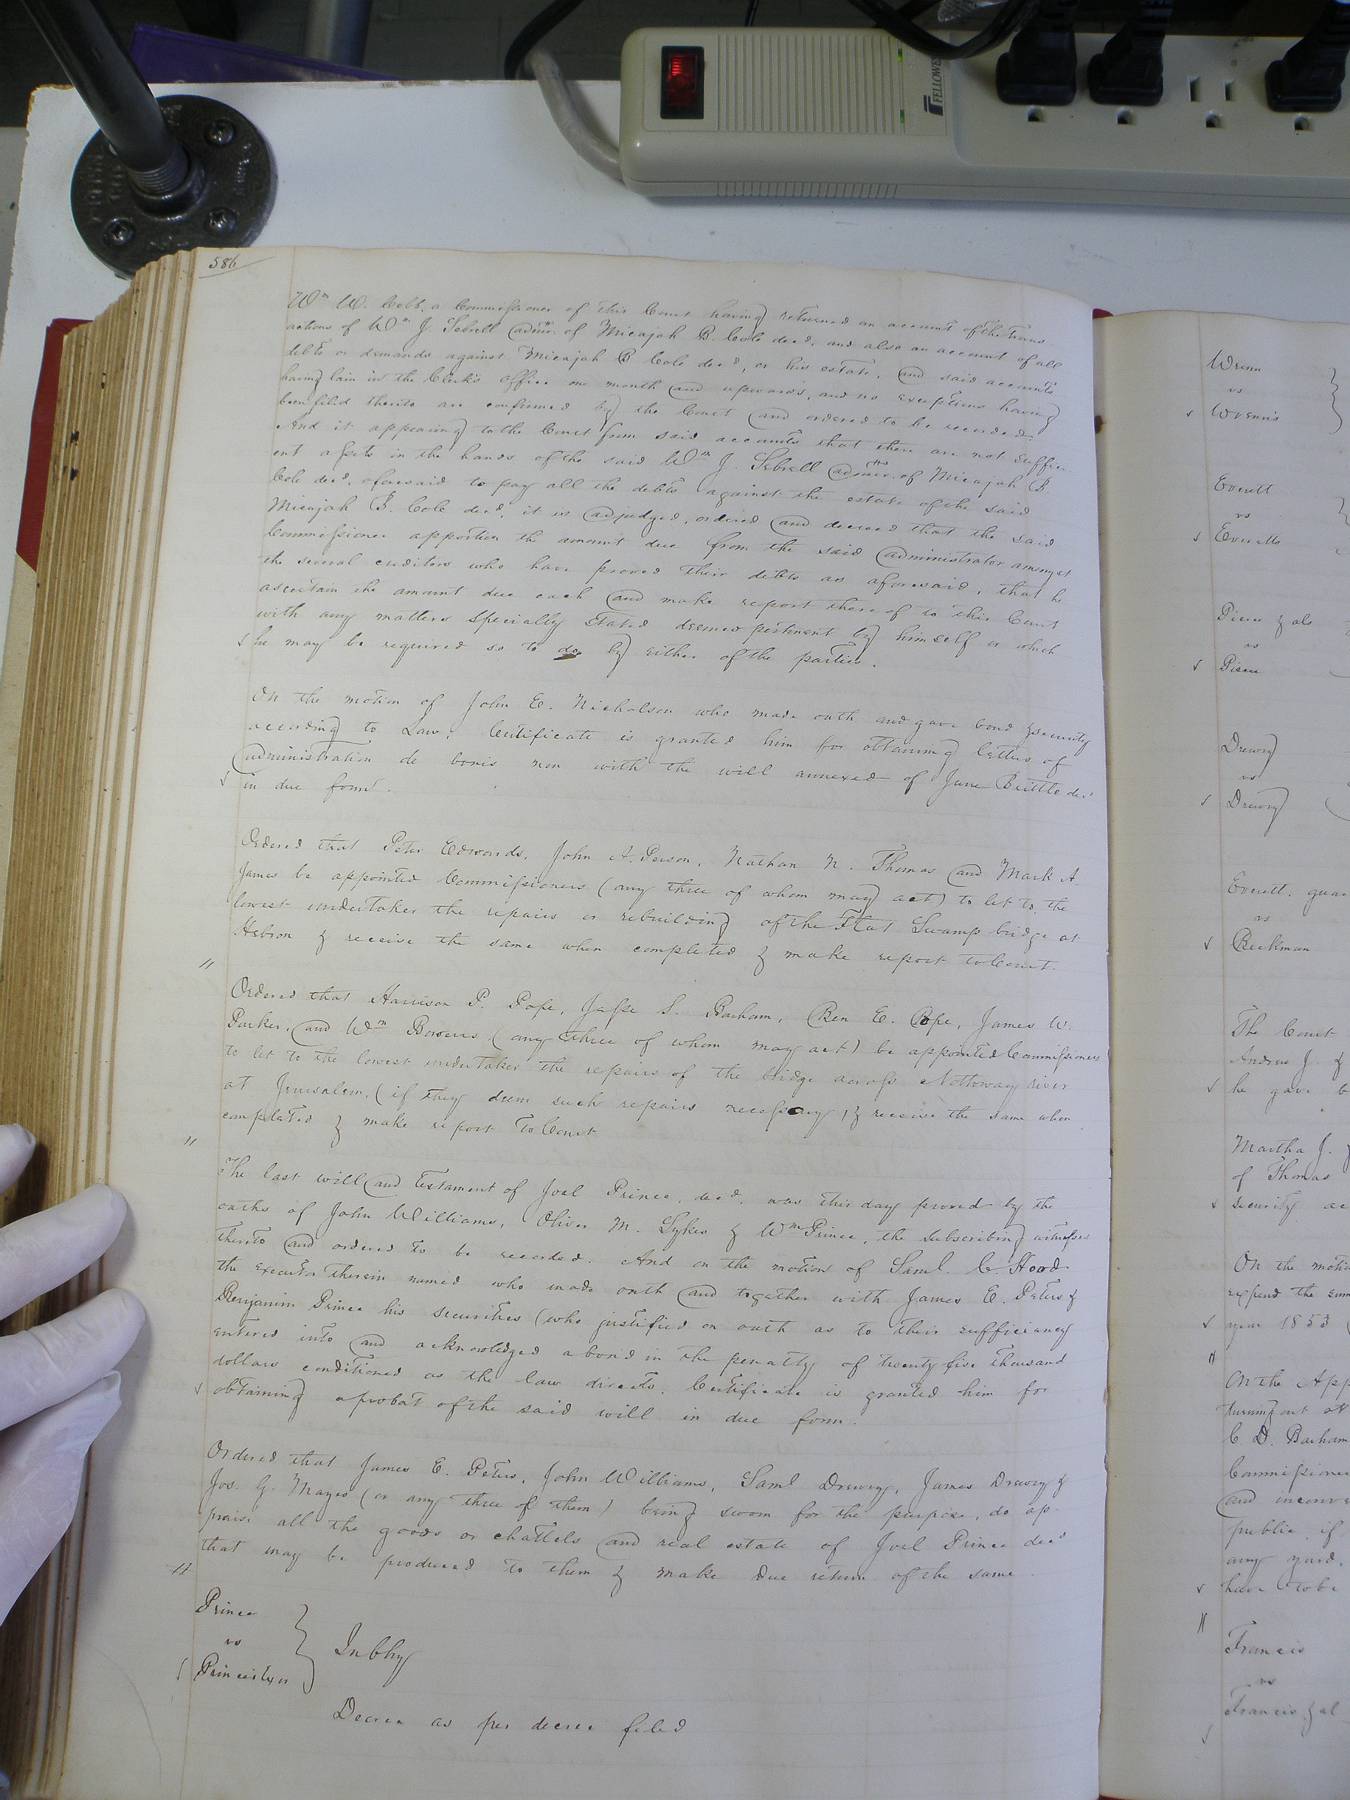 FELLOWES
586
Wm W. Cobb, a Commissioner of this Court having returned an account of the trans-
actions of Wm J. Sebrell admr. of Micajah B. Cole decd, and also an account of all
debts or demands against Micajah B Cole decd, or his estate, and said accounts
having lain in the Clerk's office one month and upwards, and no exceptions having
been filed thereto are confirmed by the Court and ordered to be recorded.
And it appearing to the Court from said accounts that there are not suffici-
ent assets in the hands of the said Wm J. Sebrell admr. of Micajah B.
Cole decd, aforesaid to pay all the debts against the estate of the said
Micajah B. Cole decd, it is adjudged, ordered and decreed that the said
Commissioner apportion the amount due from the said administrator amongst
the several creditors who have proved their debts as aforesaid, that he
ascertain the amount due each and make report thereof to this Court
with any matters specially stated deemed pertinent by himself or which
he may be required so to do by either of the parties.
On the motion of John E. Nicholson who made oath and gave bond & security
according to Law, Certificate is granted him for obtaining letters of
administration de bonis non with the will annexed of Jane Brittle decd
in due form.
Ordered that Peter Edwards, John A. Person, Nathan N. Thomas and Mark A.
James be appointed Commissioners (any three of whom may act) to let to the
lowest undertaker the repairs or rebuilding of the Flat Swamp bridge at
Hebron & receive the same when completed & make report to Court.
Ordered that Harrison P. Pope, Jesse S. Barham, Ben E. Pope, James W.
Parker, and Wm Bowers, (any three of whom may act) be appointed Commissioners
to let to the lowest undertaker the repairs of the bridge across Nottoway river
at Jerusalem, (if they deem such repairs necessary) & receive the same when
completed & make report to Court
The last will and testament of Joel Prince, decd. was this day proved by the
oaths of John Williams, Oliver M. Sykes & Wm Prince, the subscribing witnesses
thereto and ordered to be recorded. And on the motion of Saml. C Hood
the executor therein named who made oath and together with James E. Peters &
Benjamin Prince his securities (who justified on oath as to their sufficiency
entered into and acknowledged a bond in the penalty of twenty five thousand
dollars conditioned as the law directs. Certificate is granted him for
obtaining a probat of the said will in due form.
Ordered that James E. Peters, John Williams, Saml Drewry, James Drewry &
Jos. G. Mayes (or any three of them) being sworn for the purpose, do ap-
praise all the goods or chattels and real estate of Joel Prince decd
that may be produced to them & make due return of the same.
Prince
vs
Prince's exr
In Chy
Decree as per decree filed
Wrenn
vs
Wrenns
Everett
vs
Everetts
Pierce & als
vs
Pierce
Drewry
vs
Drewry
Everett. guar
vs
Beckman
The Court
Andrew J. &
he gave b
Martha J.
of Thomas
security ac
On the motio
expend the sum
year 1853
On the App
turning out of
C. D. Barham
Commissione
and inconve
public, if
any yard,
have to be
Francis
vs
Francis & al